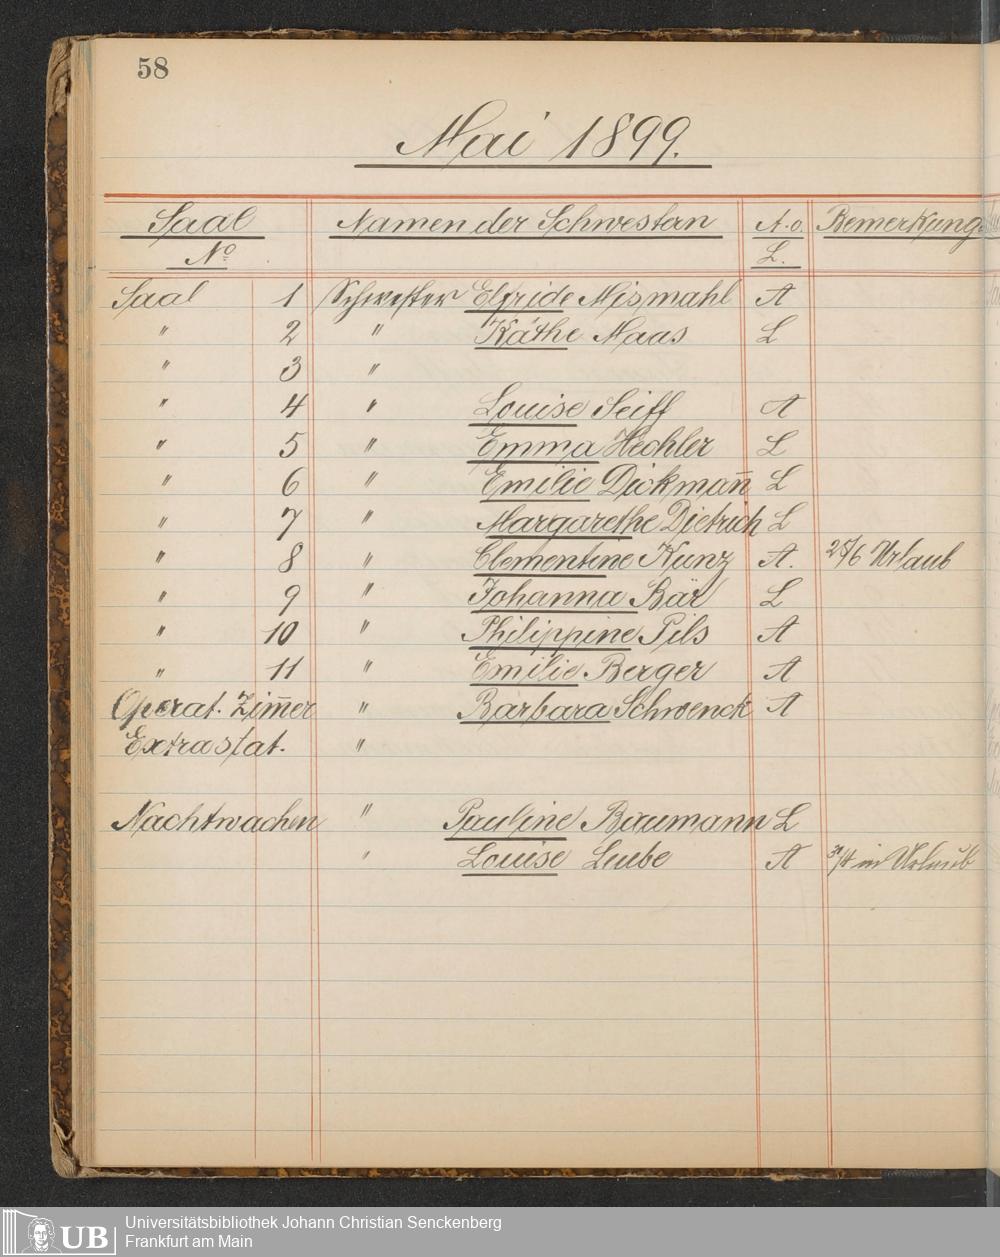 58
Mai 1899.
Saal Namen der Schwestern A. o. Bemerkung.
No L.
Saal 1 Schwester Elfride Mismahl A
" 2 " Käthe Maas L
" 3 "
" 4 " Louise Seiff A
" 5 " Emma Hechler L
" 6 " Emilie Dickman̅ L
" 7 " Margarethe Dietrich L
" 8 " Clementine Kunz A. 25/6 Urlaub
" 9 " Johanna Bär L
" 10 " Philippine Pils A
" 11 " Emilie Berger A
Operat. Zim̅er " Barbara Schwenck A
Extrastat. "
Nachtwachen " Pauline Baumann L
" Louise Leube A in Urlaub
Universitätsbibliothek Johann Christian Senckenberg
UB Frankfurt am Main